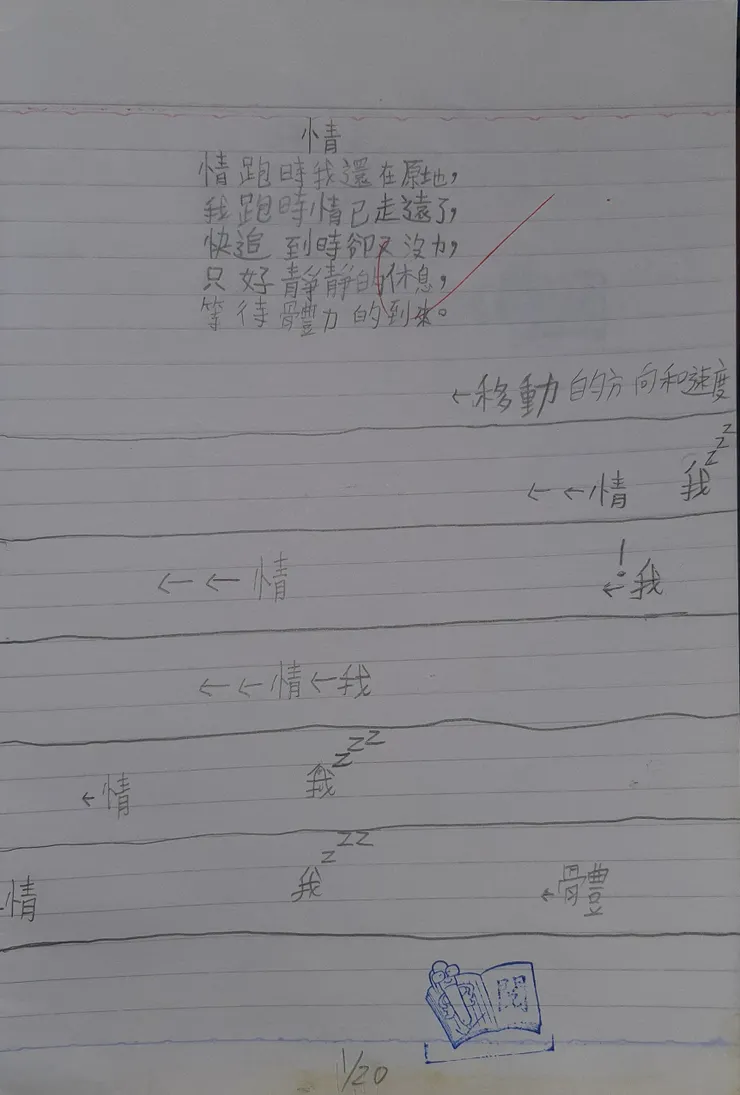 情
情跑時我還在原地，
我跑時情已走遠了，
快追到時卻又沒力，
只好靜靜的休息，
等待體力的到來。
←移動的方向和速度
z z z
←←情 我
!
←←情 ←我
←←情←我
z z z
←情 我
z z z
←情 我 ←體
閱
1/20